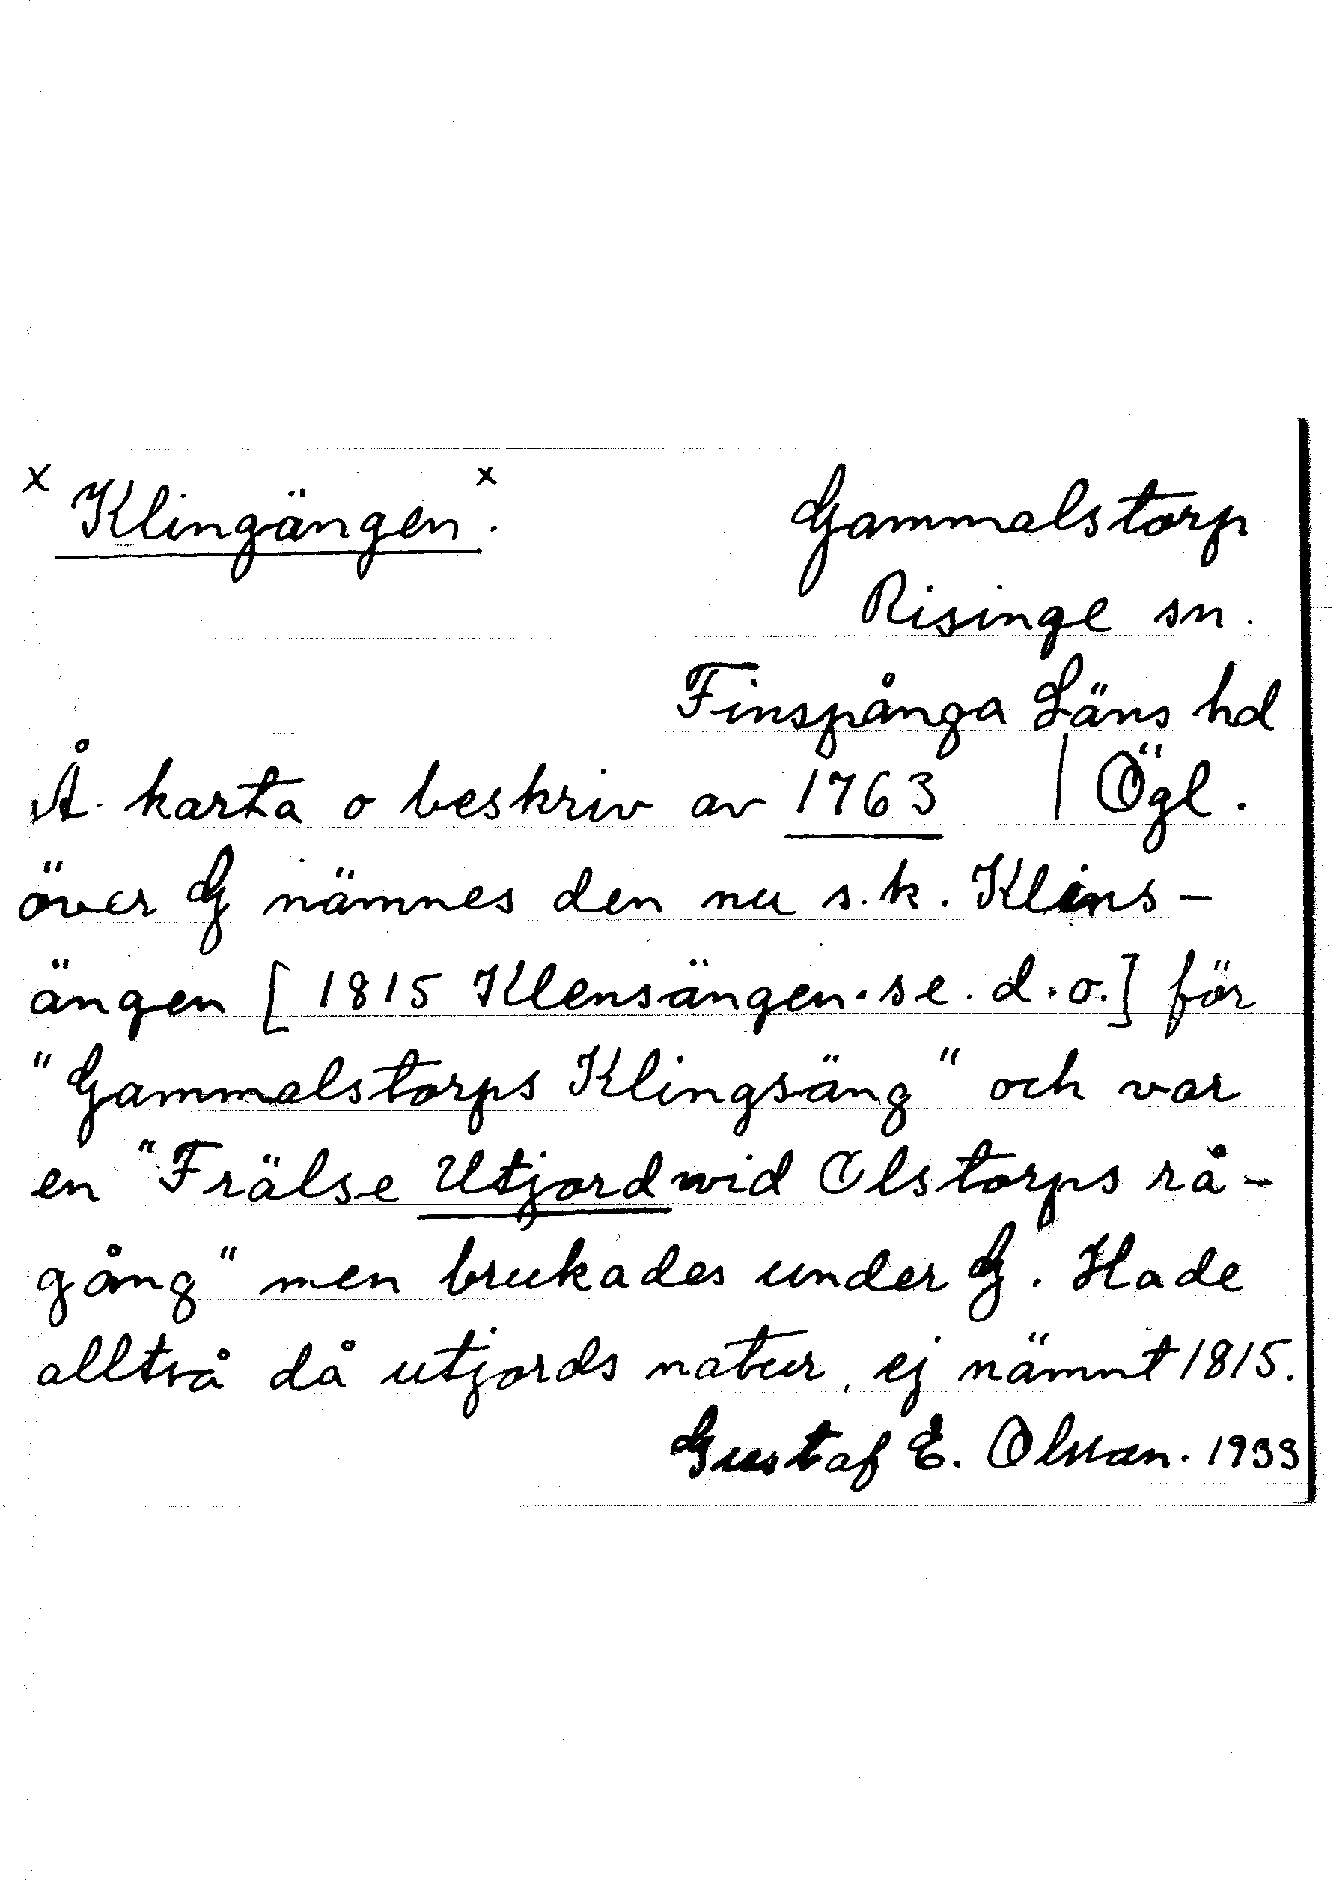 x Klingängen x.
Gammalstorp
Risinge sn.
Finspånga Läns hd
Å karta o beskriv av 1763 | Ögl.
över G nämnes den nu s.k. Klins-
ängen [1815 Klensängen. se. d. o.] för
"Gammalstorps Klingsäng" och var
en "Frälse Utjord wid Olstorps rå-
gång" men brukades under G. Hade
alltså då utjords natur, ej nämnt 1815.
Gustaf E. Olsson. 1933